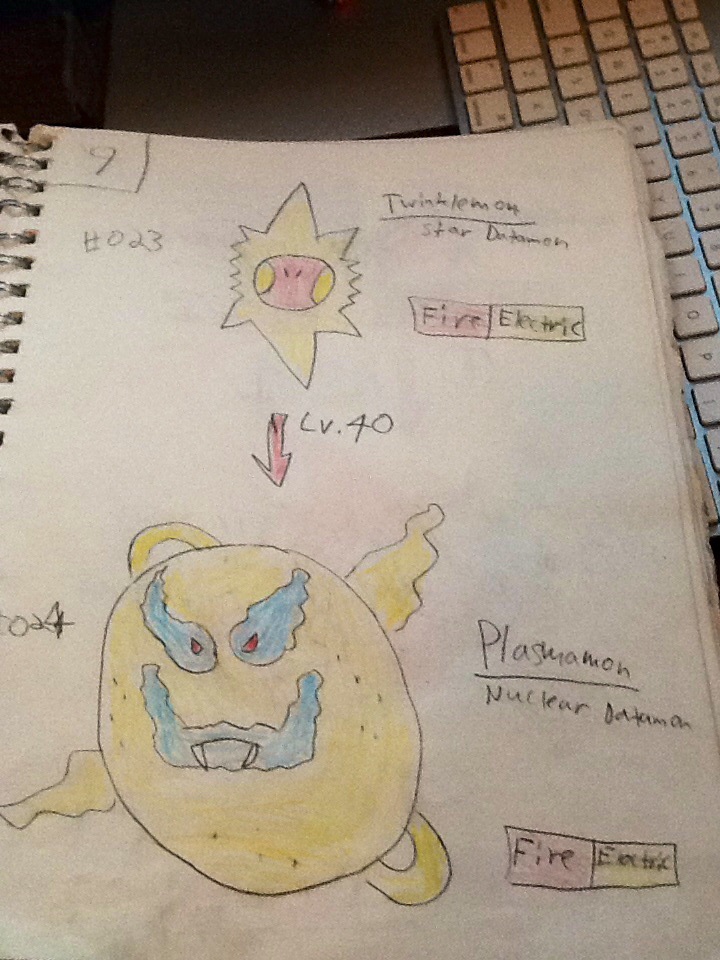 9
#023
Twinklemon
Star Datamon
Fire Electric
Lv.40
#024
Plasmamon
Nuclear Datamon
Fire Electric